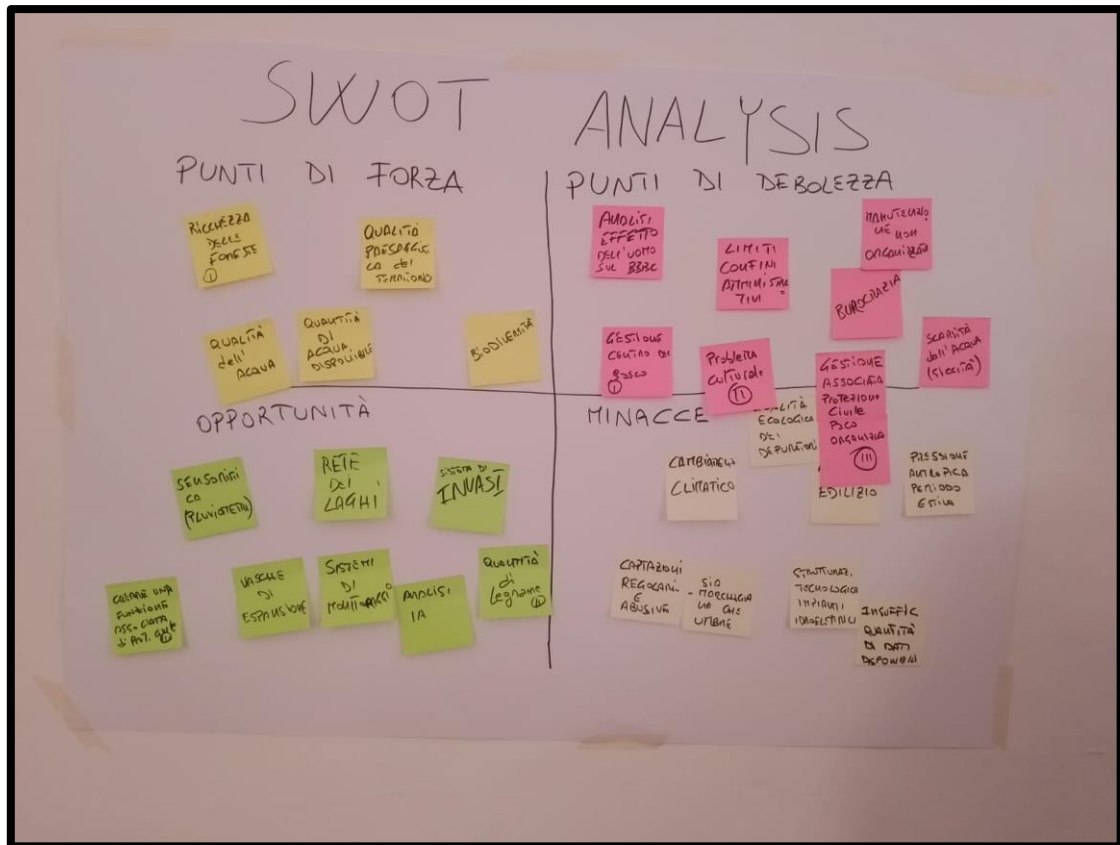 SWOT ANALYSIS
PUNTI DI FORZA
RICCHEZZA
DELLE
FORESTE
I
QUALITÀ
PAESAGGIS
CA del
TERRITORIO
QUALITÀ
dell'
ACQUA
QUANTITÀ
DI
ACQUA
DISPONIBILE
BIODIVERSITÀ
PUNTI DI DEBOLEZZA
ANALISI
EFFETTO
DELL'UOMO
SUL
LIMITI
CONFINI
AMMINISTRA
TIVI
MANUTENZIO
NE NON
ORGANIZZATA
BUROCRAZIA
GESTIONE
CENTRO DI
BOSCO
I
Problema
culturale
II
GESTIONE
ASSOCIATA
Protezione
Civile
POCO
ORGANIZZATA
III
SCARSITÀ
dell'ACQUA
(SICCITÀ)
OPPORTUNITÀ
SENSORISTI
CA
(PLUVIOMETRI)
RETE
DEI
LAGHI
SISTEMA DI
INVASI
CREARE UNA
FUNZIONE
ASSOCIATA
VASCHE
DI
ESPANSIONE
SISTEMI
DI
ANALISI
IA
QUANTITÀ
di
Legname
MINACCE
ECOLOGICA
DEI
DEPURATORI
CAMBIAMENTI
CLIMATICO
EDILIZIO
PRESSIONE
ANTROPICA
PERIODO
ESTIVO
CAPTAZIONI
REGOLARI
E
ABUSIVE
SIA
CHE
URBANE
TECNOLOGICA
IMPIANTI
IDROELETTRICI
INSUFFIC
QUANTITÀ
DI DATI
DISPONIBILI